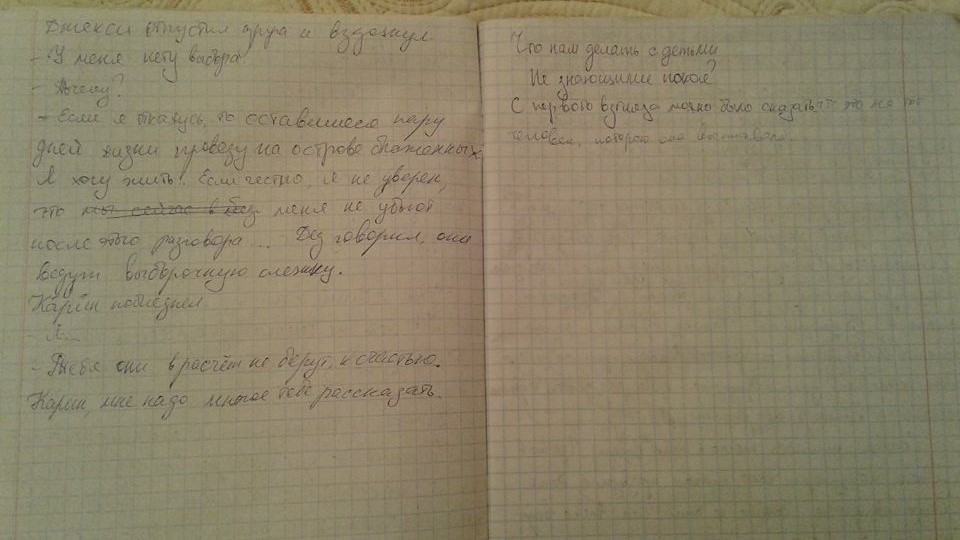 Джексн отпустил друга и вздохнул
- У меня нету выбора
- Почему?
- Если я откажусь, то оставшиеся пару
дней жизни проведу на острове блаженных.
Я хочу жить! Если честно, я не уверен,
что мы сейчас в без меня не убьют
после этого разговора... Дез говорил, они
ведут выборочную слежку.
Карин побледнел
- Я...
- Тебя они в расчёт не берут, к счастью.
Карин, мне надо многое тебе рассказать.
Что нам делать с детьми
Не знающими покоя?
С первого взгляда можно было сказать, что это не тот
человек, которого она